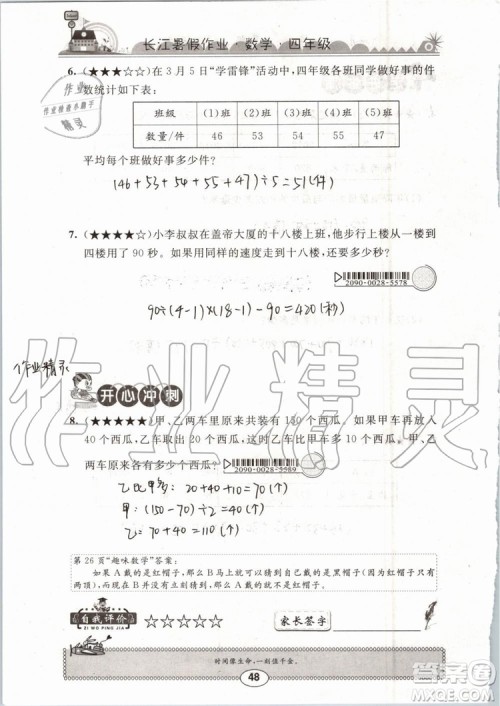 长江暑假作业·数学·四年级
6.(★★★☆☆)在3月5日“学雷锋”活动中,四年级各班同学做好事的件
数统计如下表:
班级 (1)班 (2)班 (3)班 (4)班 (5)班
数量/件 46 53 54 55 47
平均每个班做好事多少件?
(46+53+54+55+47)÷5=51(件)
7.(★★★★☆)小李叔叔在盖帝大厦的十八楼上班,他步行上楼从一楼到
四楼用了90秒。如果用同样的速度走到十八楼,还要多少秒?
2090-0028-5578
90÷(4-1)×(18-1)-90=420(秒)
作业精灵
开心冲刺
8.(★★★★★)甲、乙两车里原来共装有150个西瓜。如果甲车再放入
40个西瓜,乙车取出20个西瓜,这时乙车比甲车多10个西瓜。甲、乙
两车原来各有多少个西瓜?
2090-0028-5589
乙比甲多:20+40+10=70(个)
甲:(150-70)÷2=40(个)
乙=70+40=110(个)
第26页“趣味数学”答案:
如果A戴的是红帽子,那么B马上就可以猜到自己戴的是黑帽子(因为红帽子只有
两顶)。而现在B并没有立刻猜到,那么A戴的不是红帽子。
自我评价
ZI WO PING JIA
☆☆☆☆☆
家长签字
时间像生命,一刻值千金。
48
作业
作业检查小助手
精灵
作业精灵
作业精灵